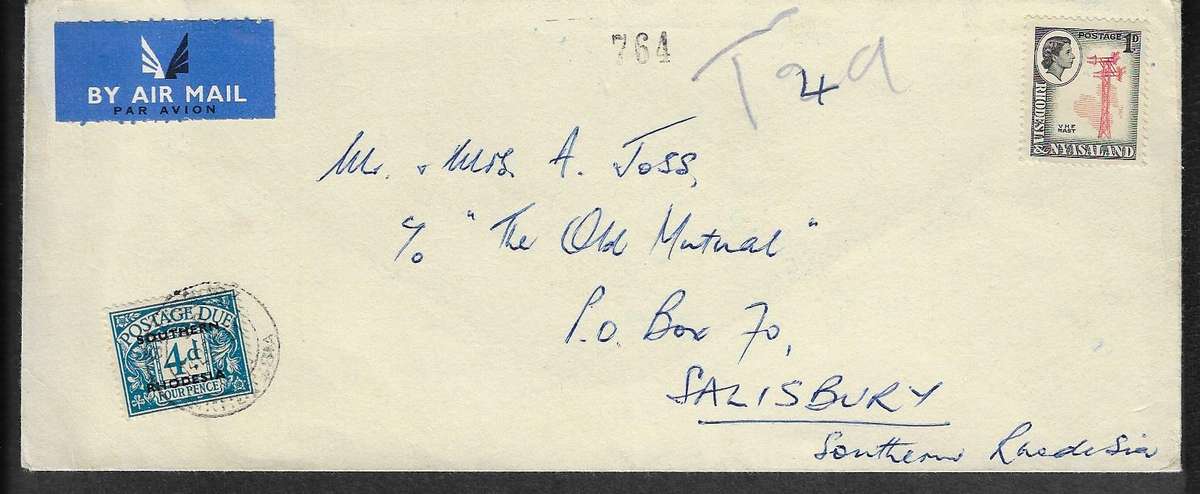 BY AIR MAIL
PAR AVION
764
T 4d
POSTAGE 1D
RHODESIA & NYASALAND
V.H.F MAST
Mr. & Mrs. A. Joss,
c/o "The Old Mutual"
P.O. Box 70,
SALISBURY
Southern Rhodesia
POSTAGE DUE
SOUTHERN
4d
RHODESIA
FOUR PENCE